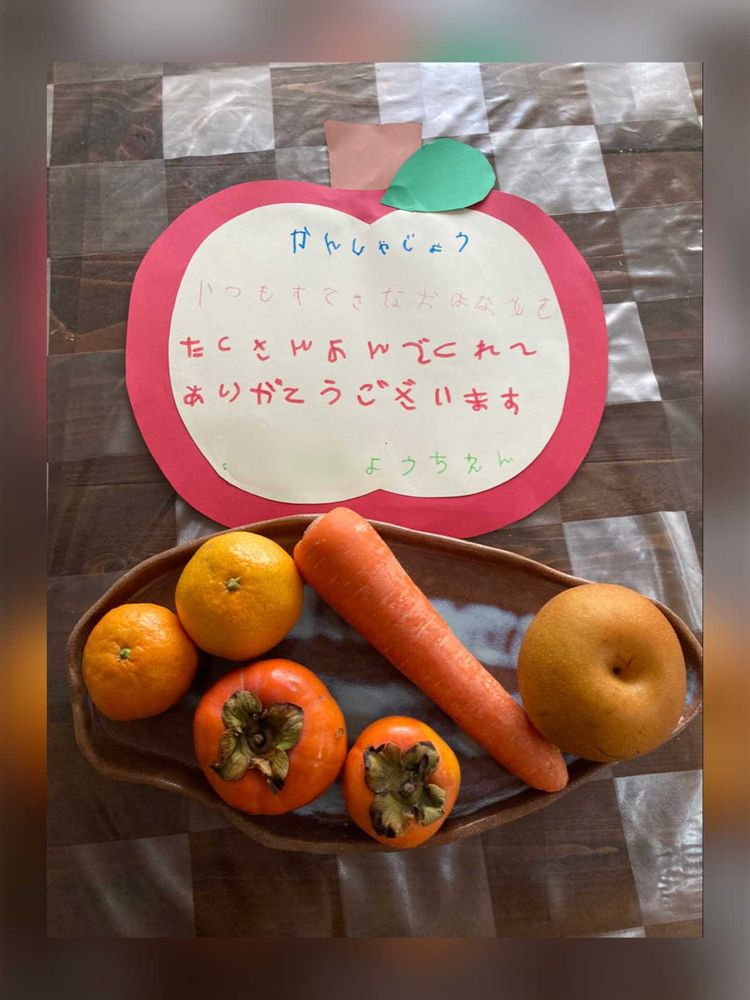 かんしゃじょう
いつもすてきなおはなしを
たくさんよんでくれて
ありがとうございます
ようちえん